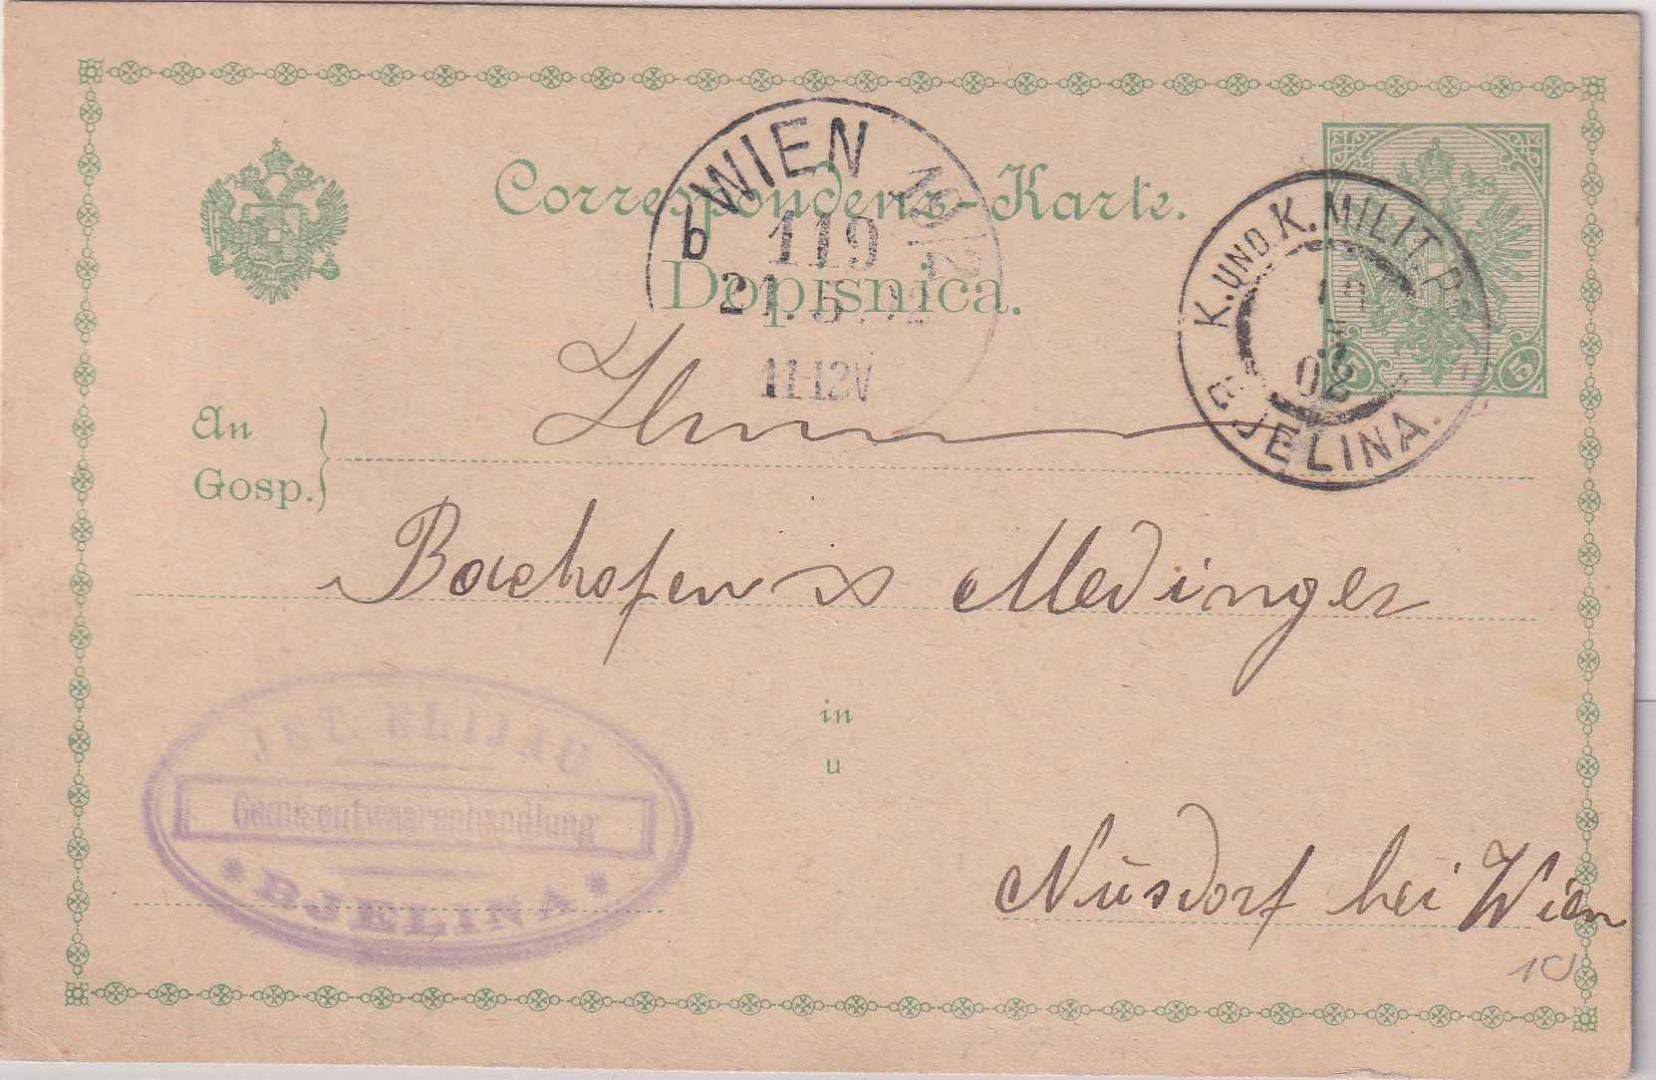 Correspondenz-Karte.
Dopisnica.
b WIEN 19/2
119
21. 5.
11-12V
K. UND K. MILIT. P.
02
BJELINA.
5 5
An
Gosp.
Bachofen & Medinger
in
u
Nusdorf bei Wien
10
Gemischtwaarenhandlung
* BJELINA *